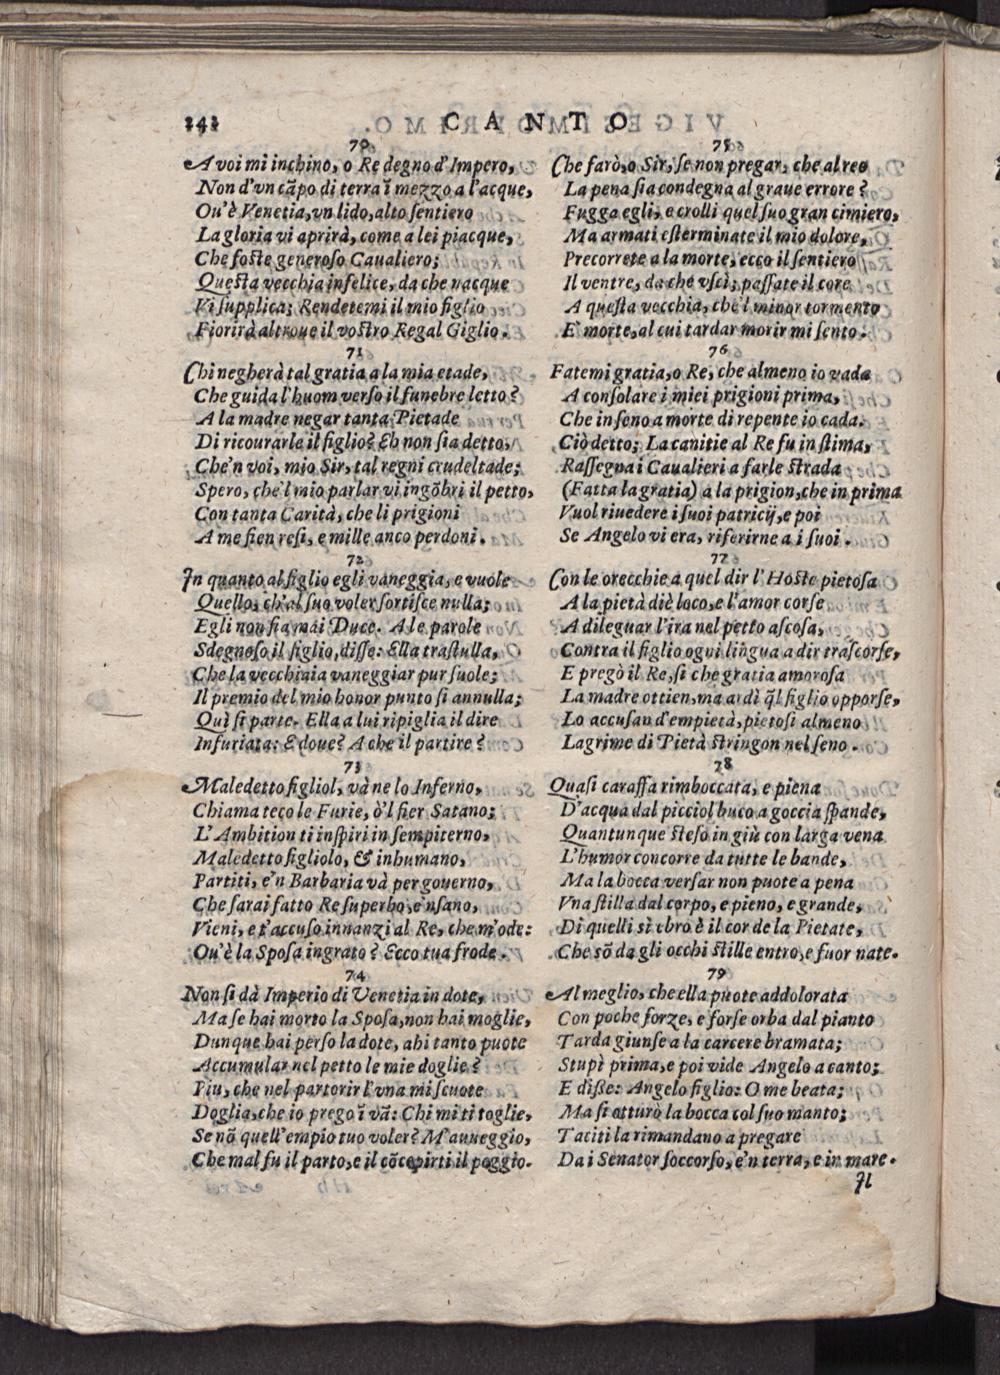 242
CANTO
70
A voi mi inchino, o Re degno d'Impero,
Non d'vn cãpo di terra ĩ mezzo a l'acque,
Ou'è Venetia, vn lido, alto sentiero
La gloria vi aprirà, come a lei piacque,
Che foste generoso Caualiero;
Questa vecchia infelice, da che nacque
Vi supplica; Rendetemi il mio figlio
Fiorirà altroue il vostro Regal Giglio.
71
Chi negherà tal gratia a la mia etade,
Che guida l'huom verso il funebre letto?
A la madre negar tanta Pietade
Di ricourarle il figlio? Eh non sia detto,
Che'n voi, mio Sir, tal regni crudeltade;
Spero, che'l mio parlar vi ingõbri il petto,
Con tanta Carità, che li prigioni
A me sien resi, e mille anco perdoni.
72
In quanto al figlio egli vaneggia, e vuole
Quello, ch'al suo voler sortisce nulla;
Egli non fia mai Duce. A le parole
Sdegnoso il figlio, disse: Ella trastulla,
Che la vecchiaia vaneggiar pur suole;
Il premio del mio honor punto si annulla;
Quì si parte. Ella a lui ripiglia il dire
Infuriata: E doue? A che il partire?
73
Maledetto figliol, và ne lo Inferno,
Chiama teco le Furie, ò'l fier Satano;
L'Ambition ti inspiri in sempiterno,
Maledetto figliolo, & inhumano,
Partiti, e'n Barbaria và per gouerno,
Che sarai fatto Re superbo, e'nsano,
Vieni, e t'accuso innanzi al Re, che m'ode:
Ou'è la Sposa ingrato? Ecco tua frode.
74
Non si dà Imperio di Venetia in dote,
Ma se hai morto la Sposa, non hai moglie,
Dunque hai perso la dote, ahi tanto puote
Accumular nel petto le mie doglie?
Piu, che nel partorir l'vna mi scuote
Doglia, che io prego ĩ vã: Chi mi ti toglie,
Se nõ quell'empio tuo voler? M'auueggio,
Che mal fu il parto, e il cõcepirti il peggio.
75
Che farò, o Sir, se non pregar, che al reo
La pena sia condegna al graue errore?
Fugga egli, e crolli quel suo gran cimiero,
Ma armati esterminate il mio dolore,
Precorrete a la morte, ecco il sentiero
Il ventre, da che vscì; passate il core
A questa vecchia, che'l minor tormento
E' morte, al cui tardar morir mi sento.
76
Fatemi gratia, o Re, che almeno io vada
A consolare i miei prigioni prima,
Che in seno a morte di repente io cada.
Ciò detto; La canitie al Re fu in stima,
Rassegna i Caualieri a farle strada
(Fatta la gratia) a la prigion, che in prima
Vuol riuedere i suoi patricij, e poi
Se Angelo vi era, riferirne a i suoi.
77
Con le orecchie a quel dir l'Hoste pietosa
A la pietà diè loco, e l'amor corse
A dileguar l'ira nel petto ascosa,
Contra il figlio ogni lingua a dir trascorse,
E pregò il Re, sì che gratia amorosa
La madre ottien, ma ardì q̃l figlio opporse,
Lo accusan d'empietà, pietosi almeno
Lagrime di Pietà stringon nel seno.
78
Quasi caraffa rimboccata, e piena
D'acqua dal picciol buco a goccia spande,
Quantunque steso in giù con larga vena
L'humor concorre da tutte le bande,
Ma la bocca versar non puote a pena
Vna stilla dal corpo, e pieno, e grande,
Di quelli sì ebro è il cor de la Pietate,
Che sõ da gli occhi stille entro, e fuor nate.
79
Al meglio, che ella puote addolorata
Con poche forze, e forse orba dal pianto
Tarda giunse a la carcere bramata;
Stupì prima, e poi vide Angelo a canto;
E disse: Angelo figlio: O me beata;
Ma si atturò la bocca col suo manto;
Taciti la rimandano a pregare
Da i Senator soccorso, e'n terra, e in mare.
Il